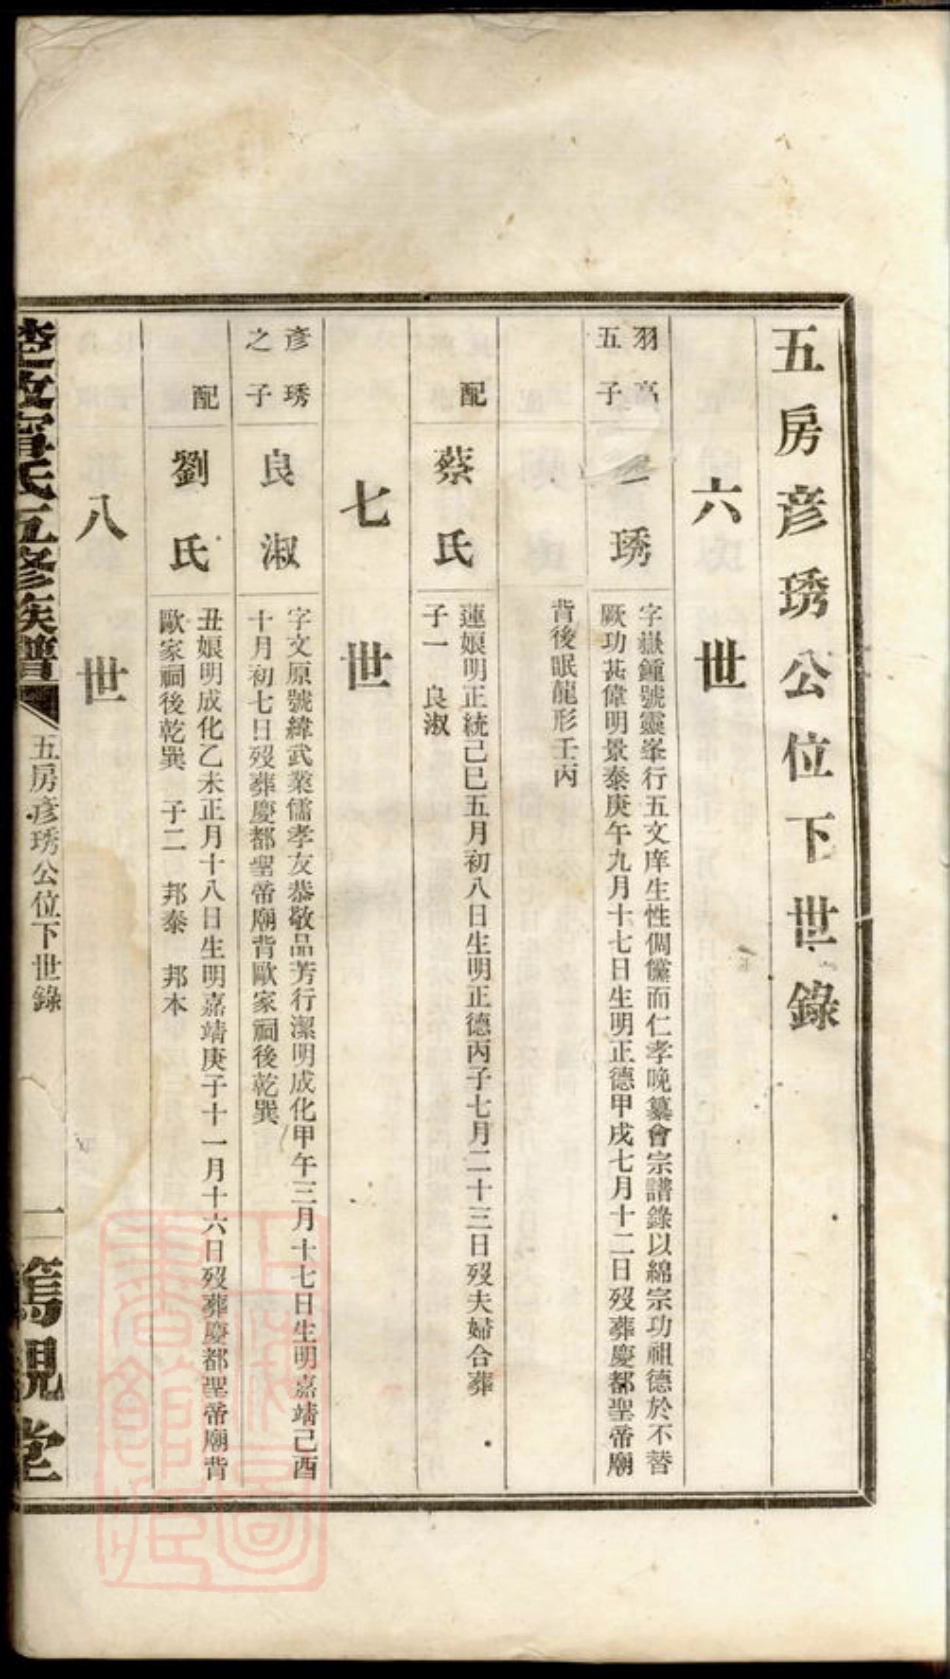 五房彦琇公位下世錄
六世
羽高
五子
琇
字嶽鍾號靈峯行五文庠生性倜儻而仁孝晚纂會宗譜錄以綿宗功祖德於不替
厥功甚偉明景泰庚午九月十七日生明正德甲戌七月十二日歿葬慶都聖帝廟
背後眠龍形壬丙
配
蔡氏
蓮娘明正統己巳五月初八日生明正德丙子七月二十三日歿夫婦合葬
子一 良淑
七世
彦琇
之子
良淑
字文原號緯武業儒孝友恭敬品芳行潔明成化甲午三月十七日生明嘉靖己酉
十月初七日歿葬慶都聖帝廟背歐家祠後乾巽
配
劉氏
丑娘明成化乙未正月十八日生明嘉靖庚子十一月十六日歿葬慶都聖帝廟背
歐家祠後乾巽 子二 邦泰 邦本
八世
氏五修族譜
五房彦琇公位下世錄
一
篤親堂